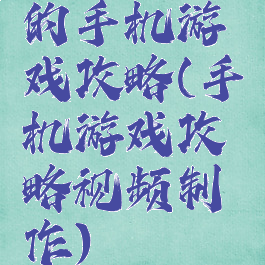 的手机游
戏攻略(手
机游戏攻
略视频制
作)